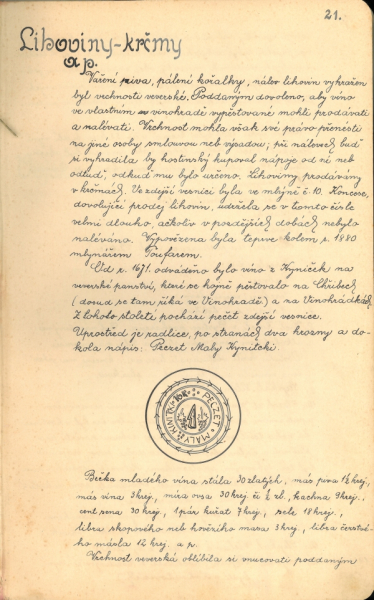 21.
Lihoviny-krčmy
a p.
Vaření piva, pálení kořalky, nálev lihovin vyhražen
byl vrchnosti veverské. Poddaným dovoleno, aby víno
ve vlastním vinohradě vypěstované mohli prodávati
a nalévati. Vrchnost mohla však své právo přenésti
na jiné osoby smlouvou neb výsadou; při nálevech buď
si vyhradila by hostinský kupoval nápoje od ní neb
odtud, odkud mu bylo určeno. Lihoviny prodávány
v krčmách. Ve zdejší vesnici byla ve mlýně č. 10. Koncese,
dovolující prodej lihovin, udržela se v tomto čísle
velmi dlouho, ačkoliv v pozdějších dobách nebylo
naléváno. Vypovězena byla teprve kolem r. 1880
mlynářem Foufarem.
Od r. 1671. odváděno bylo víno z Kyniček na
veverské panství, které se hojně pěstovalo na Chřibech
(dosud se tam říká ve Vinohradě) a na Vinohrádkách.
Z tohoto století pochází pečeť zdejší vesnice.
Uprostřed je radlice, po stranách dva hrozny a do-
kola nápis: Peczet Maly Kynitcki.
PECZET
MALY
Bečka mladého vína stála 30 zlatých, más piva 1½ krej.,
más vína 3 krej., míra ovsa 30 krej. či ½ zl., kachna 9 krej.,
cent sena 30 krej., 1 pár kuřat 7 krej., sele 18 krej.,
libra skopového neb hovězího masa 3 krej., libra čerstvé-
ho másla 12 krej. a p.
Vrchnost veverská oblíbila si vnucovati poddaným